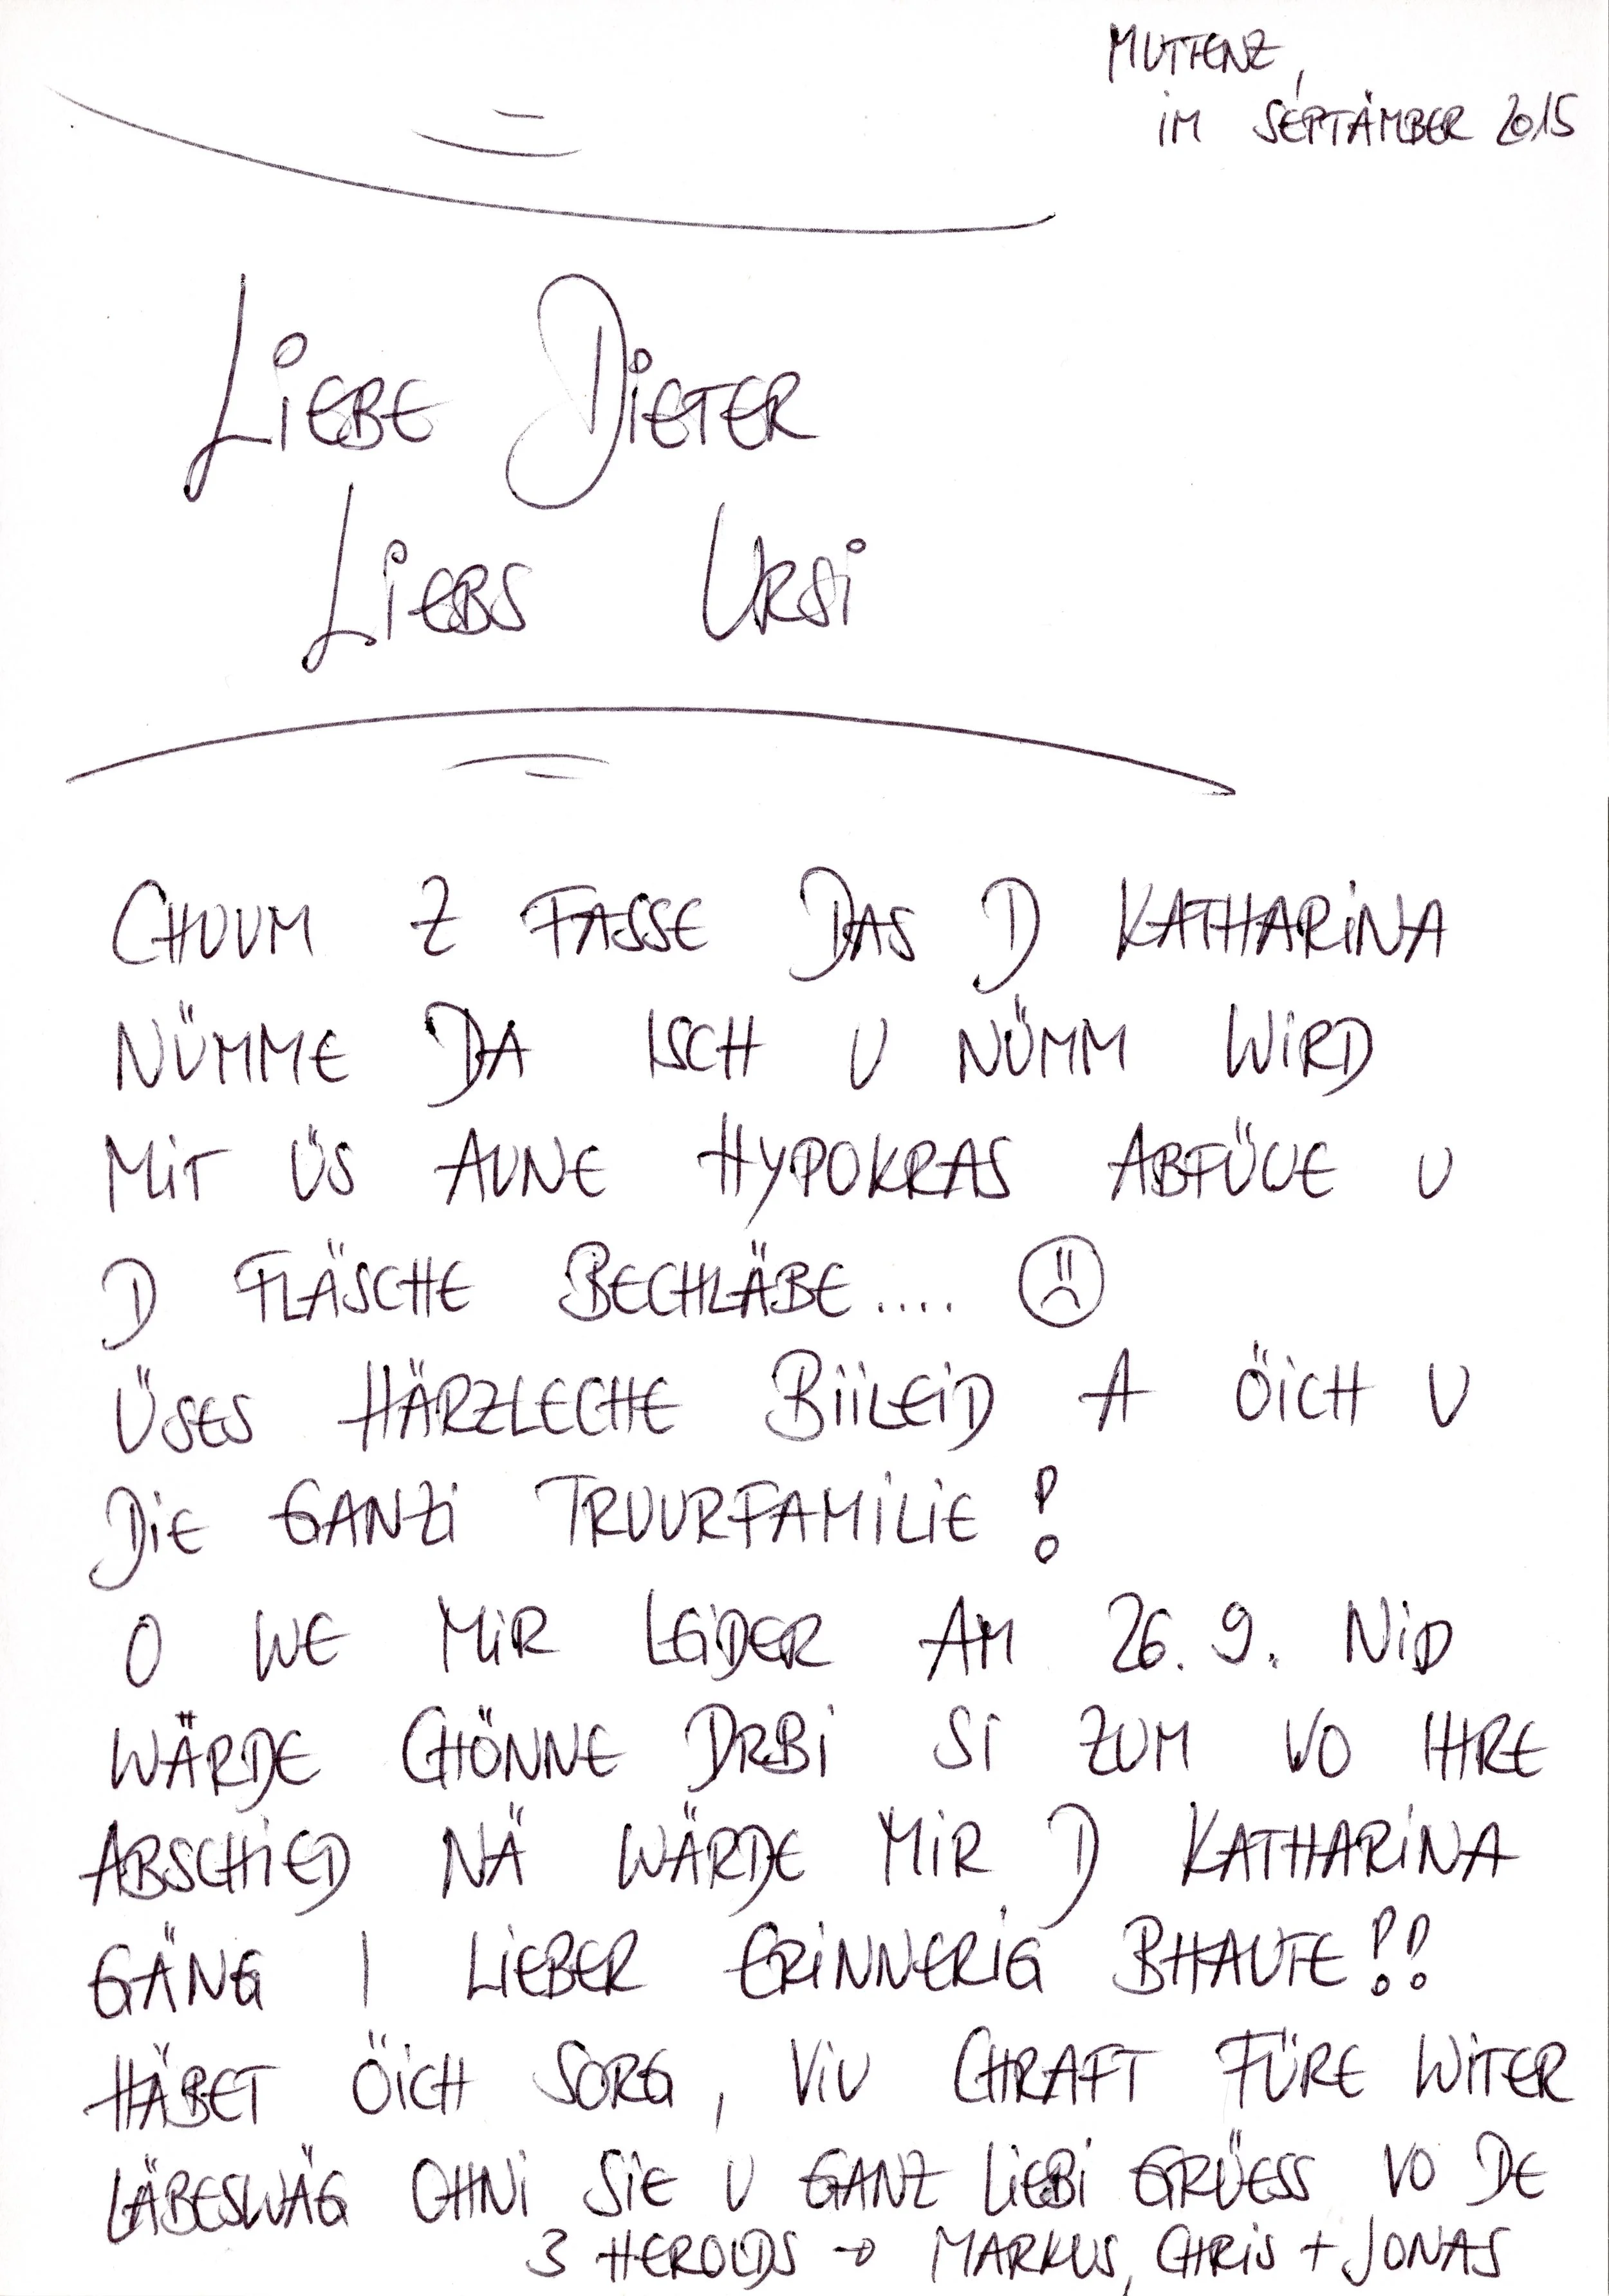 MUTTENZ,
IM SEPTÄMBER 2015
LIEBE DIETER
LIEBS URSI
CHUUM Z FASSE DAS D KATHARINA
NÜMME DA ISCH U NÜMM WIRD
MIT ÜS AUNE HYPOKRAS ABFÜUE U
D FLÄSCHE BECHLÄBE.... ☹
ÜSES HÄRZLECHE BIILEID A ÖICH U
DIE GANZI TRUURFAMILIE!
O WE MIR LEIDER AM 26.9. NID
WÄRDE CHÖNNE DRBI SI ZUM VO IHRE
ABSCHIED NÄ WÄRDE MIR D KATHARINA
GÄNG I LIEBER ERINNERIG BHAUTE!!
HÄBET ÖICH SORG, VIU CHRAFT FÜRE WITER
LÄBESWÄG OHNI SIE U GANZ LIEBI GRÜESS VO DE
3 HEROLDS → MARKUS, CHRIS + JONAS